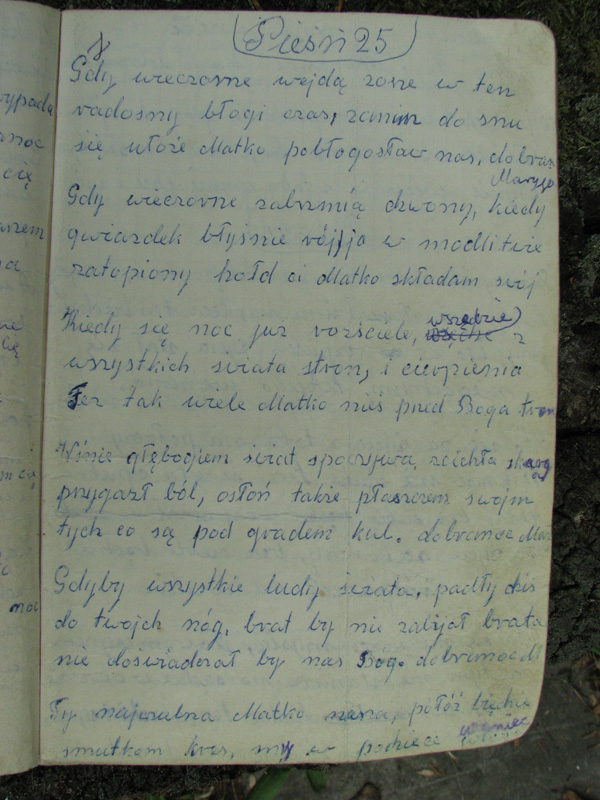 Pieśń 25
Gdy wieczorne wejdą zorze w ten
radosny błogi czas, zanim do snu
się ułożę Matko pobłogosław nas, dobran
Maryjo
Gdy wieczorne zabrzmią dzwony, kiedy
gwiazdek błyśnie rój, ja w modlitwie
zatopiony hołd ci Matko składam swój
Kiedy się noc już rozściele, wszędzie z
wszystkich świata stron, i cierpienia
łez tak wiele Matko nieś pred Boga tron
W śnie głębogiem świat spoczywa, zcichła skarga
przygazł ból, osłoń także płaszczem swojm
tych co są pod gradem kul. dobranoc Mar
Gdyby wszystkie ludy świata, padły dziś
do twojch nóg, brat by nie zabijał brata
nie doświadczał by nas Bóg. dobranoc M
Ty najczulna Matko nasza, połóż
smutkom kres, my w podzięce wieniec
ypada
anoc
cię
szem
na